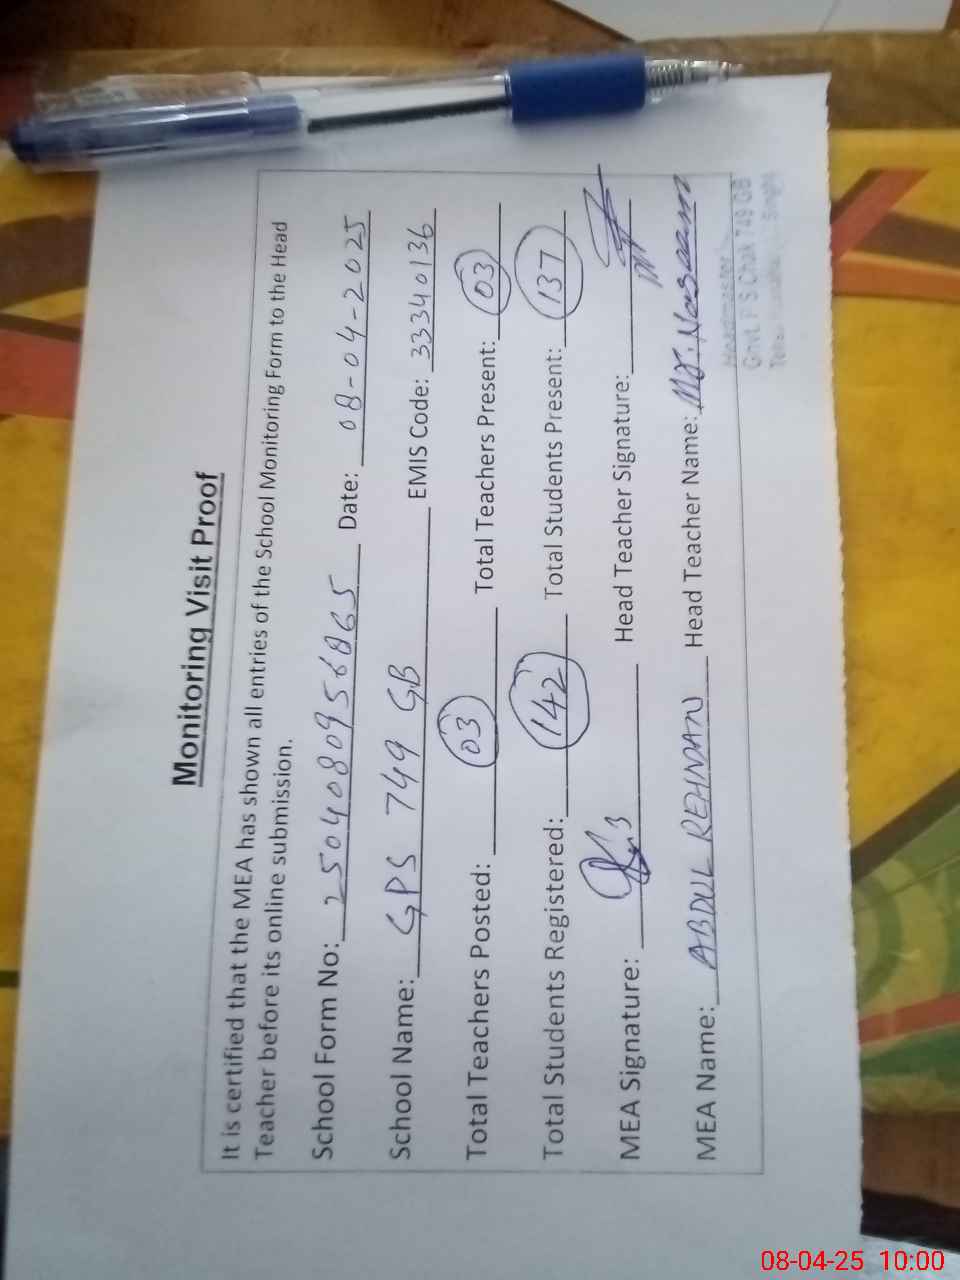 Monitoring Visit Proof
It is certified that the MEA has shown all entries of the School Monitoring Form to the Head
Teacher before its online submission.
School Form No: 2504080956865 Date: 08-04-2025
School Name: GPS 749 GB EMIS Code: 33340136
Total Teachers Posted: 03 Total Teachers Present: 03
Total Students Registered: 142 Total Students Present: 137
MEA Signature: Head Teacher Signature:
MEA Name: ABDUL REHMAN Head Teacher Name: Mr.
Headmaster
Govt. P S Chak 749 GB
08-04-25 10:00